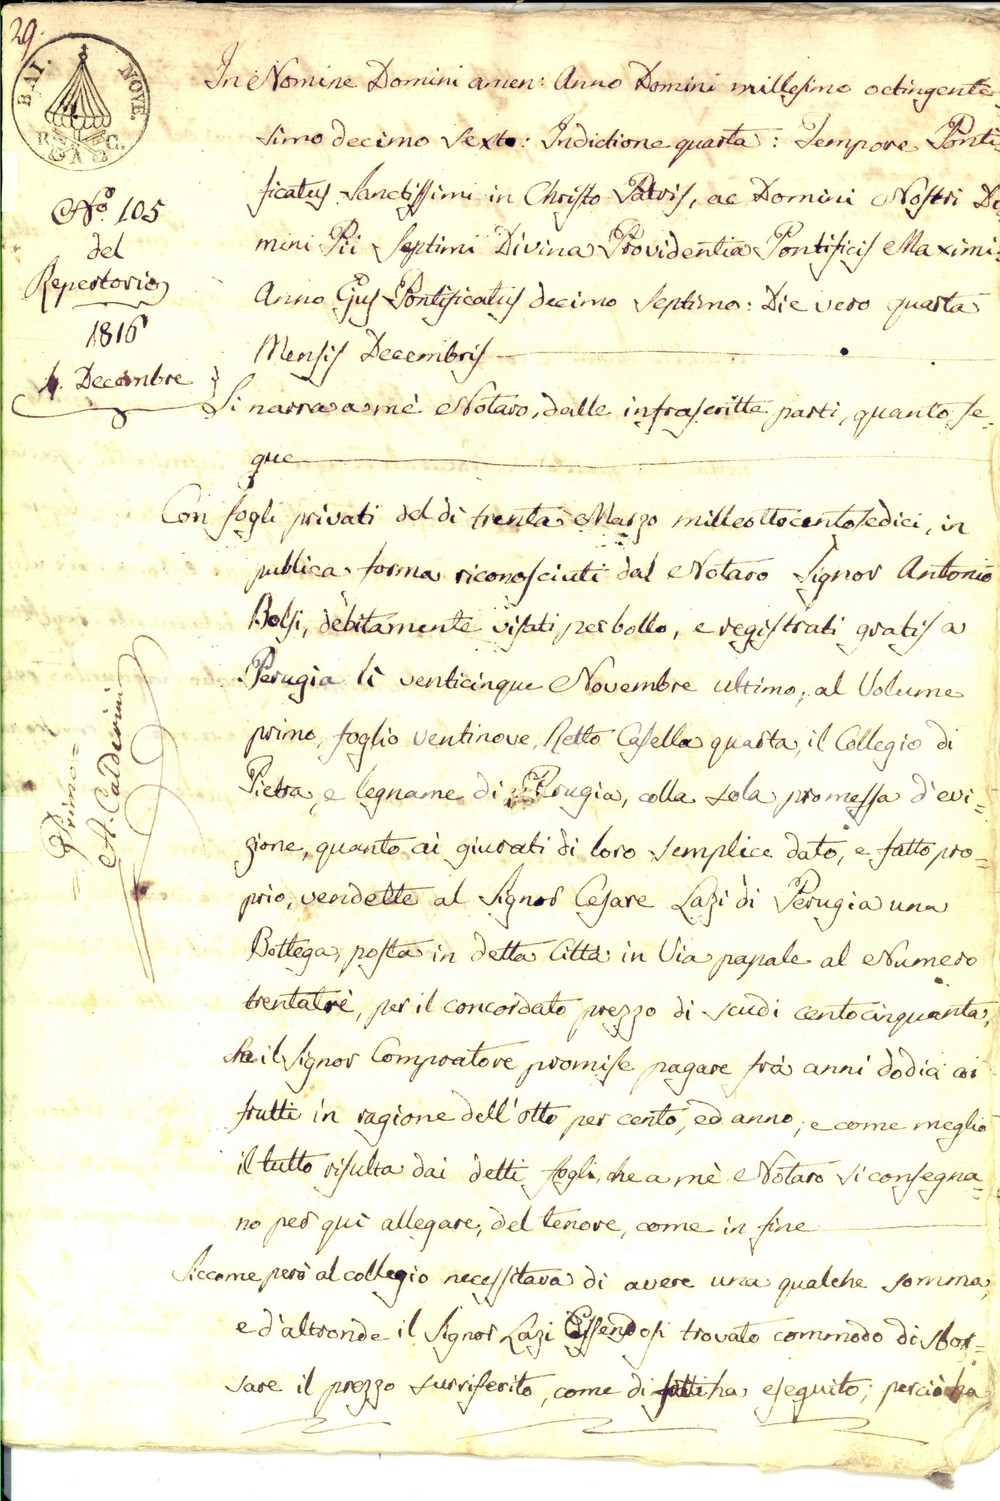 29.
BAI. NOVE.
R. C. A
No. 105
del
Repertorio
1816
4. Decembre
Primo =
A. Calderini
In Nomine Domini amen: Anno Domini millesimo octingente
simo decimo sexto: Indictione quarta: Tempore Ponti=
ficatus Sanctissimi in Christo Patris, ac Domini Nostri Do
mini Pii Septimi Divina Providentia Pontificis Maximi:
Anno Ejus Pontificatus decimo septimo: Die vero quarta
Mensis Decembris
Si narra a mè Notaro, dalle infrascritte parti, quanto se=
gue
Con fogli privati del dì trenta Marzo milleottocentosedici, in
publica forma riconosciuti dal Notaro Signor Antonio
Bolsi, debitamente visati per bollo, e registrati gratis a
Perugia li venticinque Novembre ultimo, al Volume
primo, foglio ventinove, Retto Casella quarta, il Collegio di
Pietra, e legname di Perugia, colla sola promessa d'evi=
zione, quanto ai giurati di loro semplice dato, e fatto pro=
prio, vendette al Signor Cesare Lazi di Perugia una
Bottega, posta in detta Città in Via papale al Numero
trentatrè, per il concordato prezzo di scudi centocinquanta,
che il Signor Compratore promise pagare frà anni dodici coi
frutti in ragione dell'otto per cento, ed anno; e come meglio
il tutto risulta dai detti fogli, che a mè Notaro si consegna=
no per quì allegare, del tenore, come in fine
Siccome però al collegio necessitava di avere una qualche somma,
e d'altronde il Signor Lazi Essendosi trovato commodo di sbor=
sare il prezzo surriferito, come di fatti ha eseguito; perciò ha